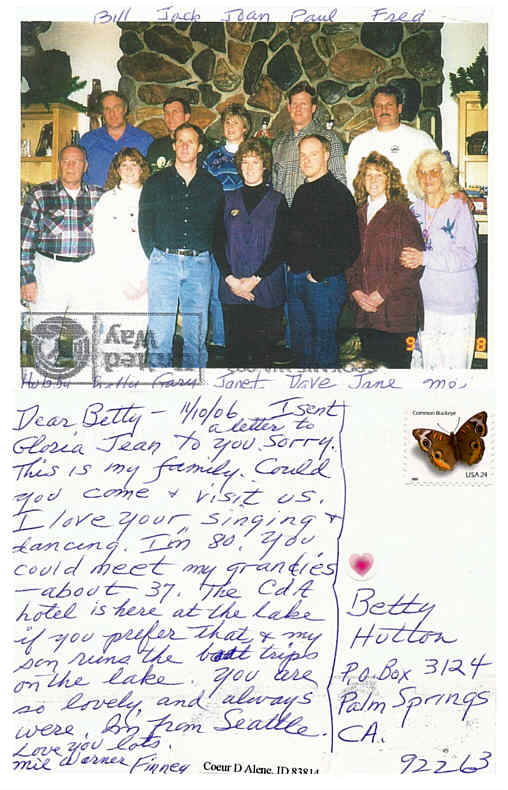 Bill Jack Joan Paul Fred
United Way
9 8
Hubby Kelly Gary Janet Dave Jane mo.
Dear Betty - 11/10/06 I sent
a letter to
Gloria Jean to you. Sorry.
This is my family. Could
you come & visit us.
I love your singing &
dancing. I'm 80. You
could meet my grandies
- about 37. The CdA
hotel is here at the lake
if you prefer that, & my
son runs the boat trips
on the lake. You are
so lovely, and always
were. I'm from Seattle.
Love you lots.
Mie Warner Finney
Coeur D Alene, ID 83814
Common Buckeye
USA 24
Betty
Hutton
P.O. Box 3124
Palm Springs
CA.
92263